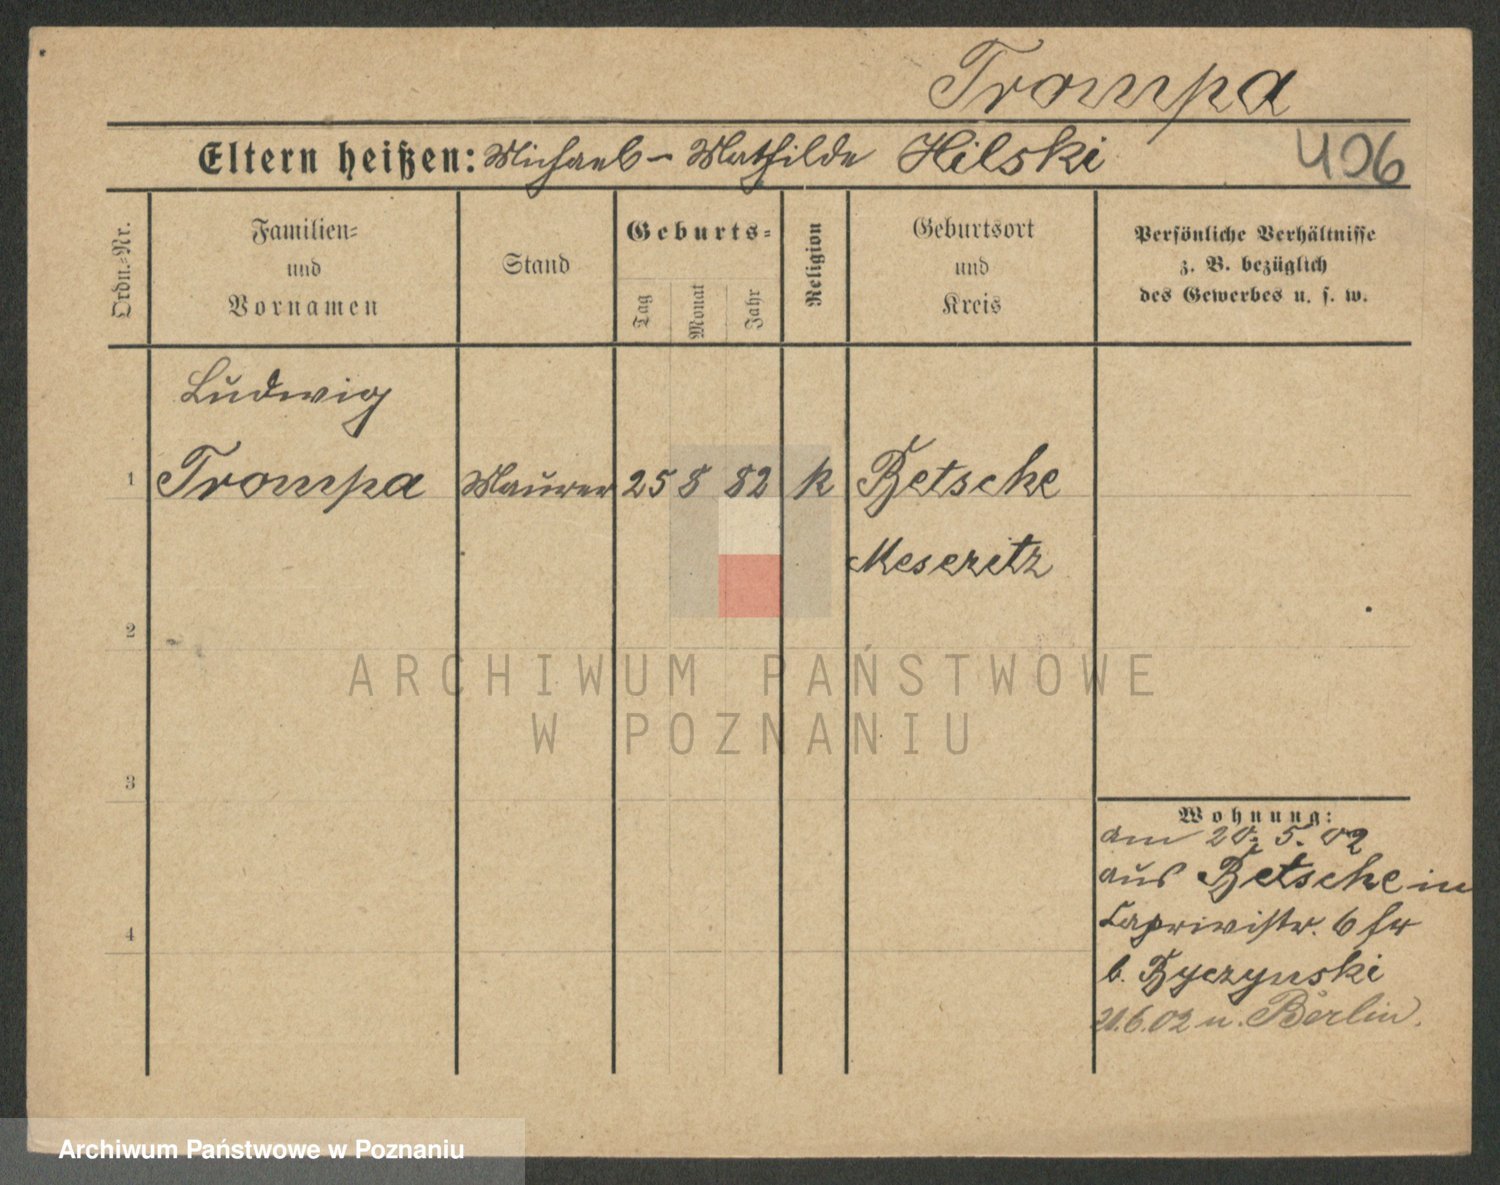 Trompa
Eltern heißen: Michael – Mathilde Hilski 406
Ordn.-Nr.
Familien-
und
Vornamen
Stand
Geburts-
Tag
Monat
Jahr
Religion
Geburtsort
und
Kreis
Persönliche Verhältnisse
z. B. bezüglich
des Gewerbes u. s. w.
Ludwig
1 Trompa Maurer 25 8 82 k Betsche
Meseritz
2
3
4
ARCHIWUM PAŃSTWOWE
W POZNANIU
Wohnung:
am 20. 5. 02
aus Betsche in
Caprivistr. 6
b. Byczynski
21.6.02 n. Berlin.
Archiwum Państwowe w Poznaniu